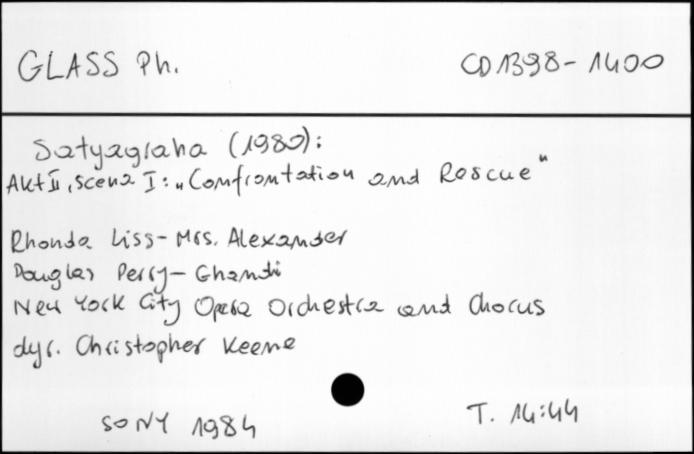 GLASS Ph. CD1398-1400
Satyagraha (1980):
Akt II, scena I: „Comfrontation and Rescue"
Rhonda Liss - Mrs. Alexander
Douglas Perry - Ghandi
New York City Opera Orchestra and Chorus
dyr. Christopher Keene
SONY 1984 T. 14:44